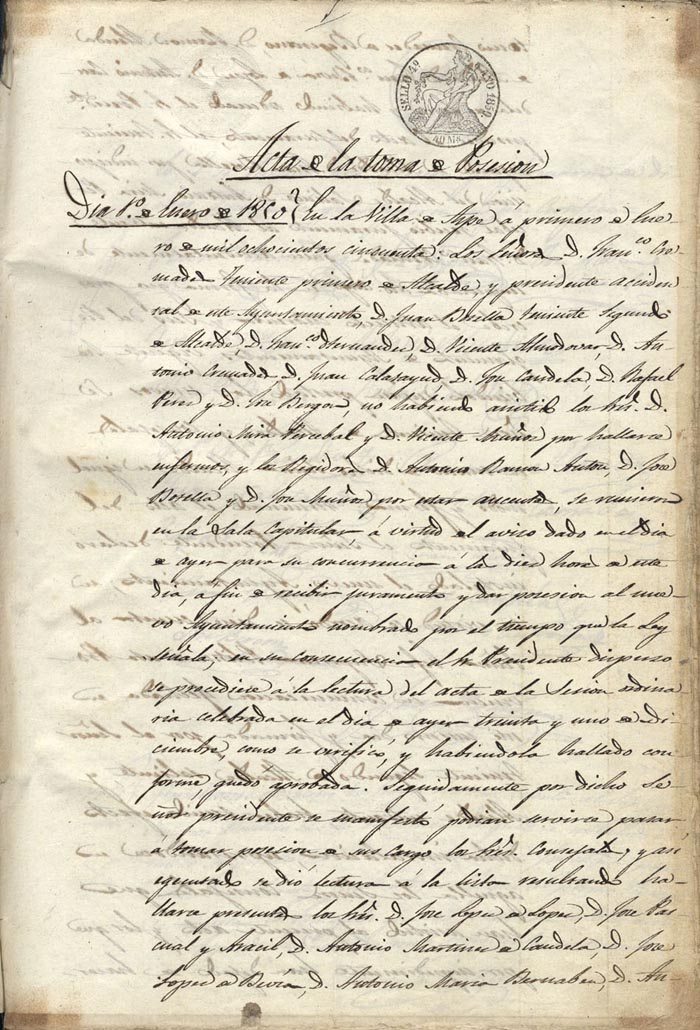 SELLO 4º AÑO 1850
40 MS.
Acta de la toma de Posesion
Dia 1.º de Enero de 1850 En la Villa de Aspe á primero de Ene-
ro de mil ochocientos cincuenta: Los Señores D. Fran.co Cre-
mades Teniente primero de Alcalde, y presidente acciden-
tal de este Ayuntamiento, D. Juan Botella teniente segundo
de Alcalde, D. Fran.co Hernandez, D. Vicente Almodovar, D. An-
tonio Cremades D. Juan Calatayud, D. José Candela, D. Rafael
Perez y D. José no habiendo asistido los Sres. D.
Antonio Mira Percebal y D. Vicente Muñoz por hallarse
enfermos, y los Regidores D. Antonio Ramon Auton, D. José
Botella y D. José Muñoz, por estar ausentes, se reunieron
en la Sala Capitular á virtud del aviso dado en el dia
de ayer para su concurrencia á la diez hora de este
dia, á fin de recibir juramento y dar posesion al nue-
vo Ayuntamiento nombrado por el tiempo que la Ley
señala, en su consecuencia el Sr. Presidente dispuso
se procediese á la lectura del acta de la Sesion ordina-
ria celebrada en el dia de ayer treinta y uno de Di-
ciembre, como se verificó, y habiendola hallado con-
forme, quedó aprobada. Seguidamente por dicho Se-
ñor presidente se manifestó podian servirse pasar
á tomar posesion de sus cargos los Sres. Consejales, y asi
egecutado se dió lectura á la lista resultando ha-
llarse presentes los Sres. D. José Lopez de Lopez, D. José Pas-
cual y Aracil, D. Antonio Martinez de Candela, D. José
Lopez de Bevia, D. Antonio Maria Bernabeu, D. An-